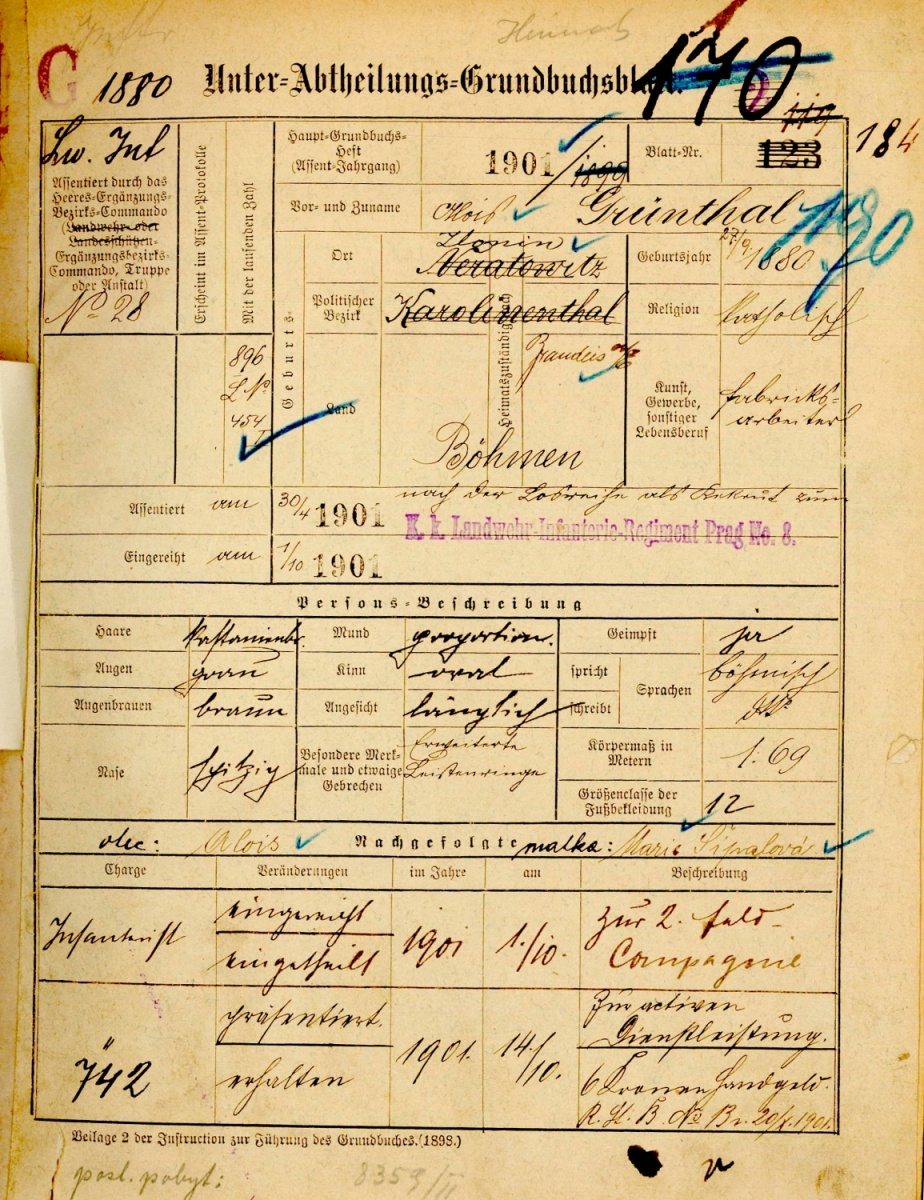 Heimat
G 1880 Unter-Abtheilungs-Grundbuchsblatt. 170
119
184
Lw. Inf
Assentiert durch das
Heeres-Ergänzungs-
Bezirks-Commando
(Landwehr- oder
Landesschützen-
Ergänzungsbezirks-
Commando, Truppe
oder Anstalt)
No 28
Erscheint im Assent-Protokolle
Mit der laufenden Zahl
896
L No
454
I
Haupt-Grundbuchs-
Heft
(Assent-Jahrgang)
1901 / 1899
Blatt-Nr.
123
Vor- und Zuname
Alois Grünthal
170
Geburts-
Heimatszuständigkeits
Ort
Neratowitz
Geburtsjahr
27/9 1880
Politischer
Bezirk
Karolinenthal
Brandeis a/E
Religion
katholisch
Land
Böhmen
Kunst,
Gewerbe,
sonstiger
Lebensberuf
Fabriks-
arbeiter
Assentiert am 30/4 1901 nach der Losreihe als Rekrut zum
K. k. Landwehr-Infanterie-Regiment Prag No. 8.
Eingereiht am 1/10 1901
Persons-Beschreibung
Haare kastanienbr. Mund proportion. Geimpft ja
Augen grau Kinn oval spricht Sprachen böhmisch
Augenbrauen braun Angesicht länglich schreibt dto
Nase spitzig
Besondere Merk-
male und etwaige
Gebrechen
Erweiterte
Leistenringe
Körpermaß in
Metern
1·69
Größenclasse der
Fußbekleidung
12
otec: Alois Nachgefolgte matka: Marie
Charge Veränderungen im Jahre am Beschreibung
Infanterist
eingereiht
eingetheilt
1901 1./10.
Zur 2. Feld-
Compagnie
"
742
präsentiert.
erhalten
1901. 14./10.
Zur activen
Dienstleistung.
6 Kronen Handgeld.
20/7 1901.
Beilage 2 der Instruction zur Führung des Grundbuches. (1898.)
posl. pobyt: 8359/II